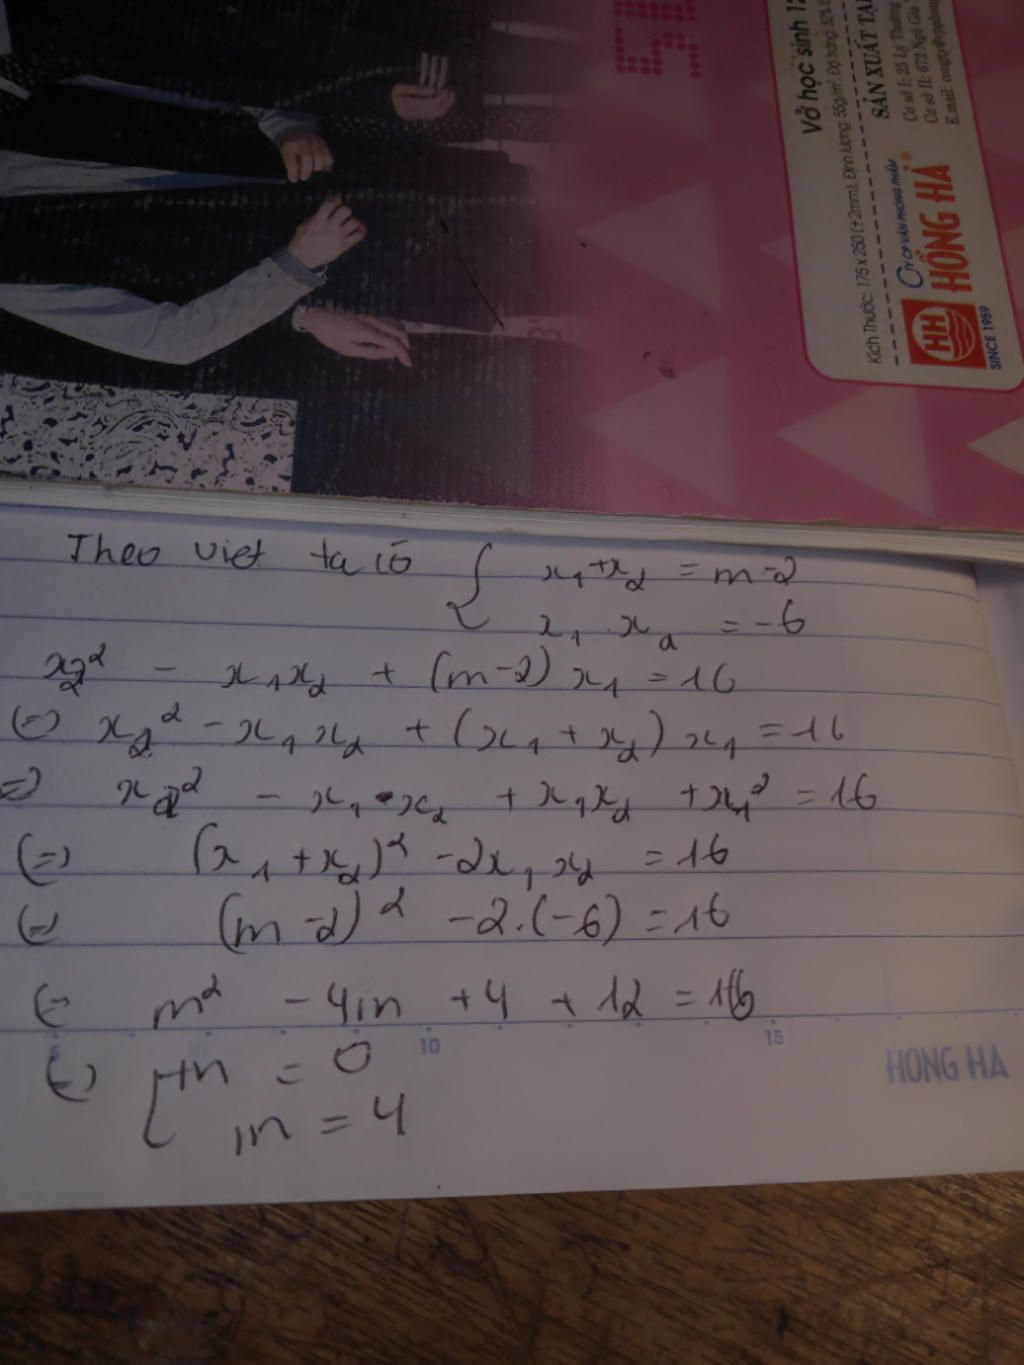 Vở học sinh 12
Kích Thước: 175 x 250 (±2mm), Định lượng: 55g/m², Độ trắng: 82%
SẢN XUẤT TẠI
Cơ sở I: 25 Lý Thường
Cơ sở II: 672 Ngô Gia
E.mail:
CTY CP VĂN PHÒNG PHẨM
HỒNG HÀ
HH
SINCE 1959
Theo viet ta có { x₁+x₂ = m-2
x₁ . x₂ = -6
x₂² - x₁x₂ + (m-2) x₁ = 16
(=) x₂² - x₁x₂ + (x₁ + x₂) x₁ = 16
=) x₂² - x₁.x₂ + x₁x₂ + x₁² = 16
(=) (x₁ + x₂)² - 2x₁x₂ = 16
(=) (m-2)² - 2.(-6) = 16
(= m² - 4m + 4 + 12 = 16
5 10 15
HONG HA
(=) [ m = 0
m = 4